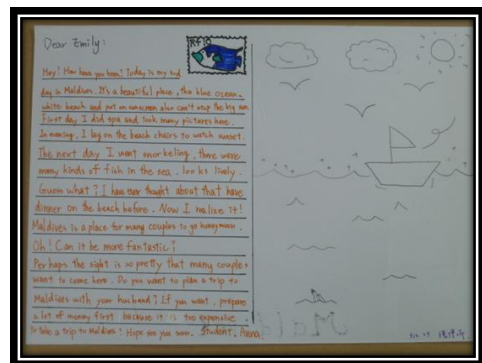 Dear Emily:
Rf 10
Hey! How have you been? Today is my 2nd
day in Maldives. It's a beautiful place, the blue ocean,
white beach and put on sunscreen also can't stop the big sun.
First day I did spa and took many pictures here.
In evening, I lay on the beach chairs to watch sunset.
The next day I went snorkeling, there were
many kinds of fish in the sea, looks lively.
Guess what? I have ever thought about that have
dinner on the beach before. Now I realize it!
Maldives is a place for many couples to go honeymoon.
Oh! Can it be more fantastic?
Perhaps the sight is so pretty that many couples
want to come here. Do you want to plan a trip to
Maldives with your husband? If you want, prepare
a lot of money first because it is too expensive
to take a trip to Maldives! Hope see you soon. Student, Anna